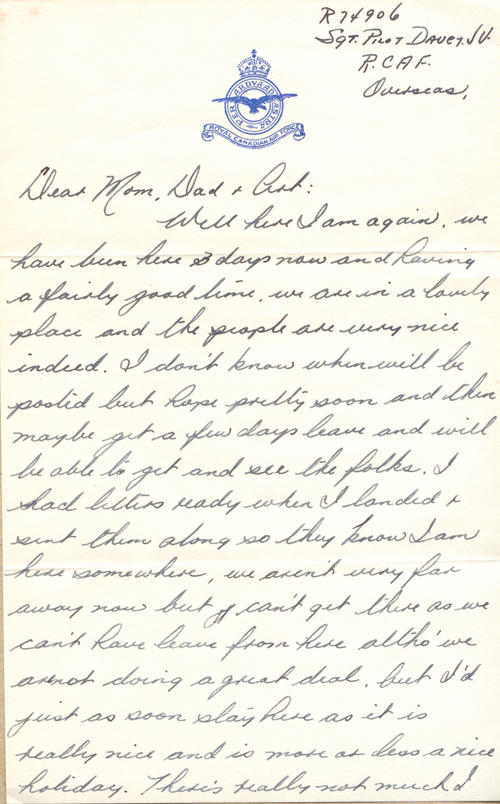 R74906
Sgt. Pilot Davey. J.V.
R.C.A.F.
Overseas,
PER ARDVA AD ASTRA
ROYAL CANADIAN AIR FORCE
Dear Mom, Dad & Art:
Well here I am again, we
have been here 3 days now and having
a fairly good time, we are in a lovely
place and the people are very nice
indeed. I don't know when will be
posted but hope pretty soon and then
maybe get a few days leave and will
be able to get and see the folks. I
had letters ready when I landed &
sent them along so they know I am
here somewhere, we aren't very far
away now but can't get there as we
can't have leave from here altho' we
are not doing a great deal, but I'd
just as soon stay here as it is
really nice and is more or less a nice
holiday. Theres really not much I